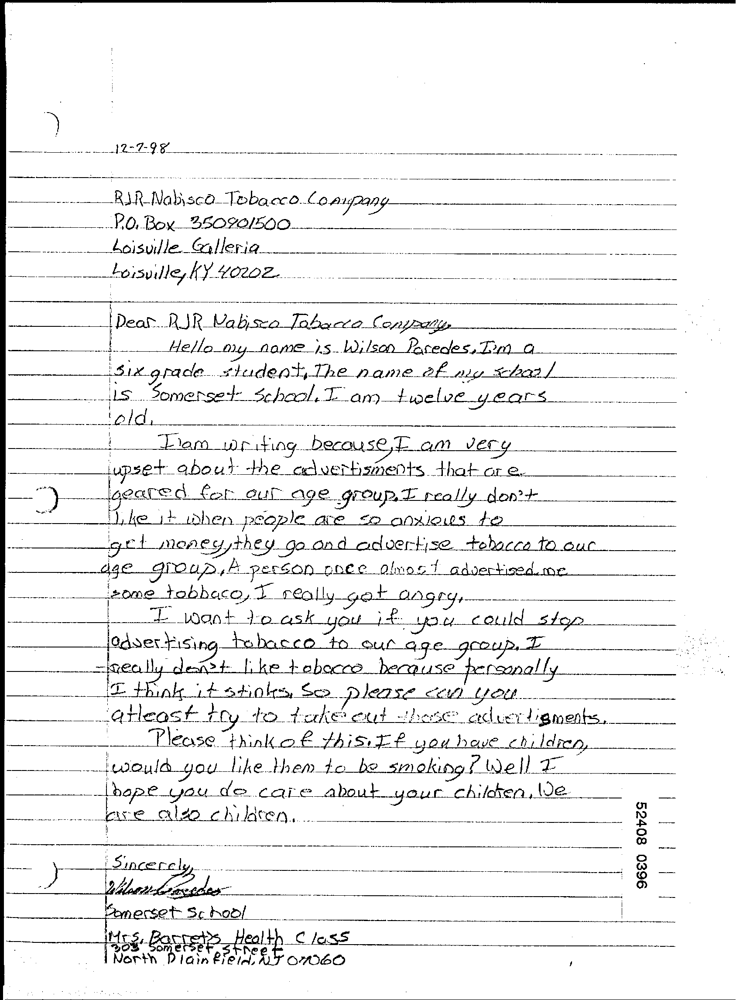 12-7-98
RJR Nabisco Tobacco Company
P.O. Box 350901500
Loisville Galleria
Loisville, KY 40202
Dear RJR Nabisco Tobacco Company,
Hello my name is Wilson Paredes, I'm a
six grade student, The name of my school
is Somerset School. I am twelve years
old.
I am writing because, I am very
upset about the advertisments that are
geared for our age group. I really don't
like it when people are so anxious to
get money, they go and advertise tobacco to our
age group, A person once almost advertised me
some tobbaco, I really got angry.
I want to ask you if you could stop
advertising tobacco to our age group. I
really don't like tobacco because personally
I think it stinks, So please can you
atleast try to take out those advertisments.
Please think of this. If you have children,
would you like them to be smoking? Well I
hope you do care about your children. We
are also children.
Sincerely,
Wilson Paredes
Somerset School
Mrs. Barret's Health Class
303 Somerset Street
North Plainfield, NJ 07060
52408 0396